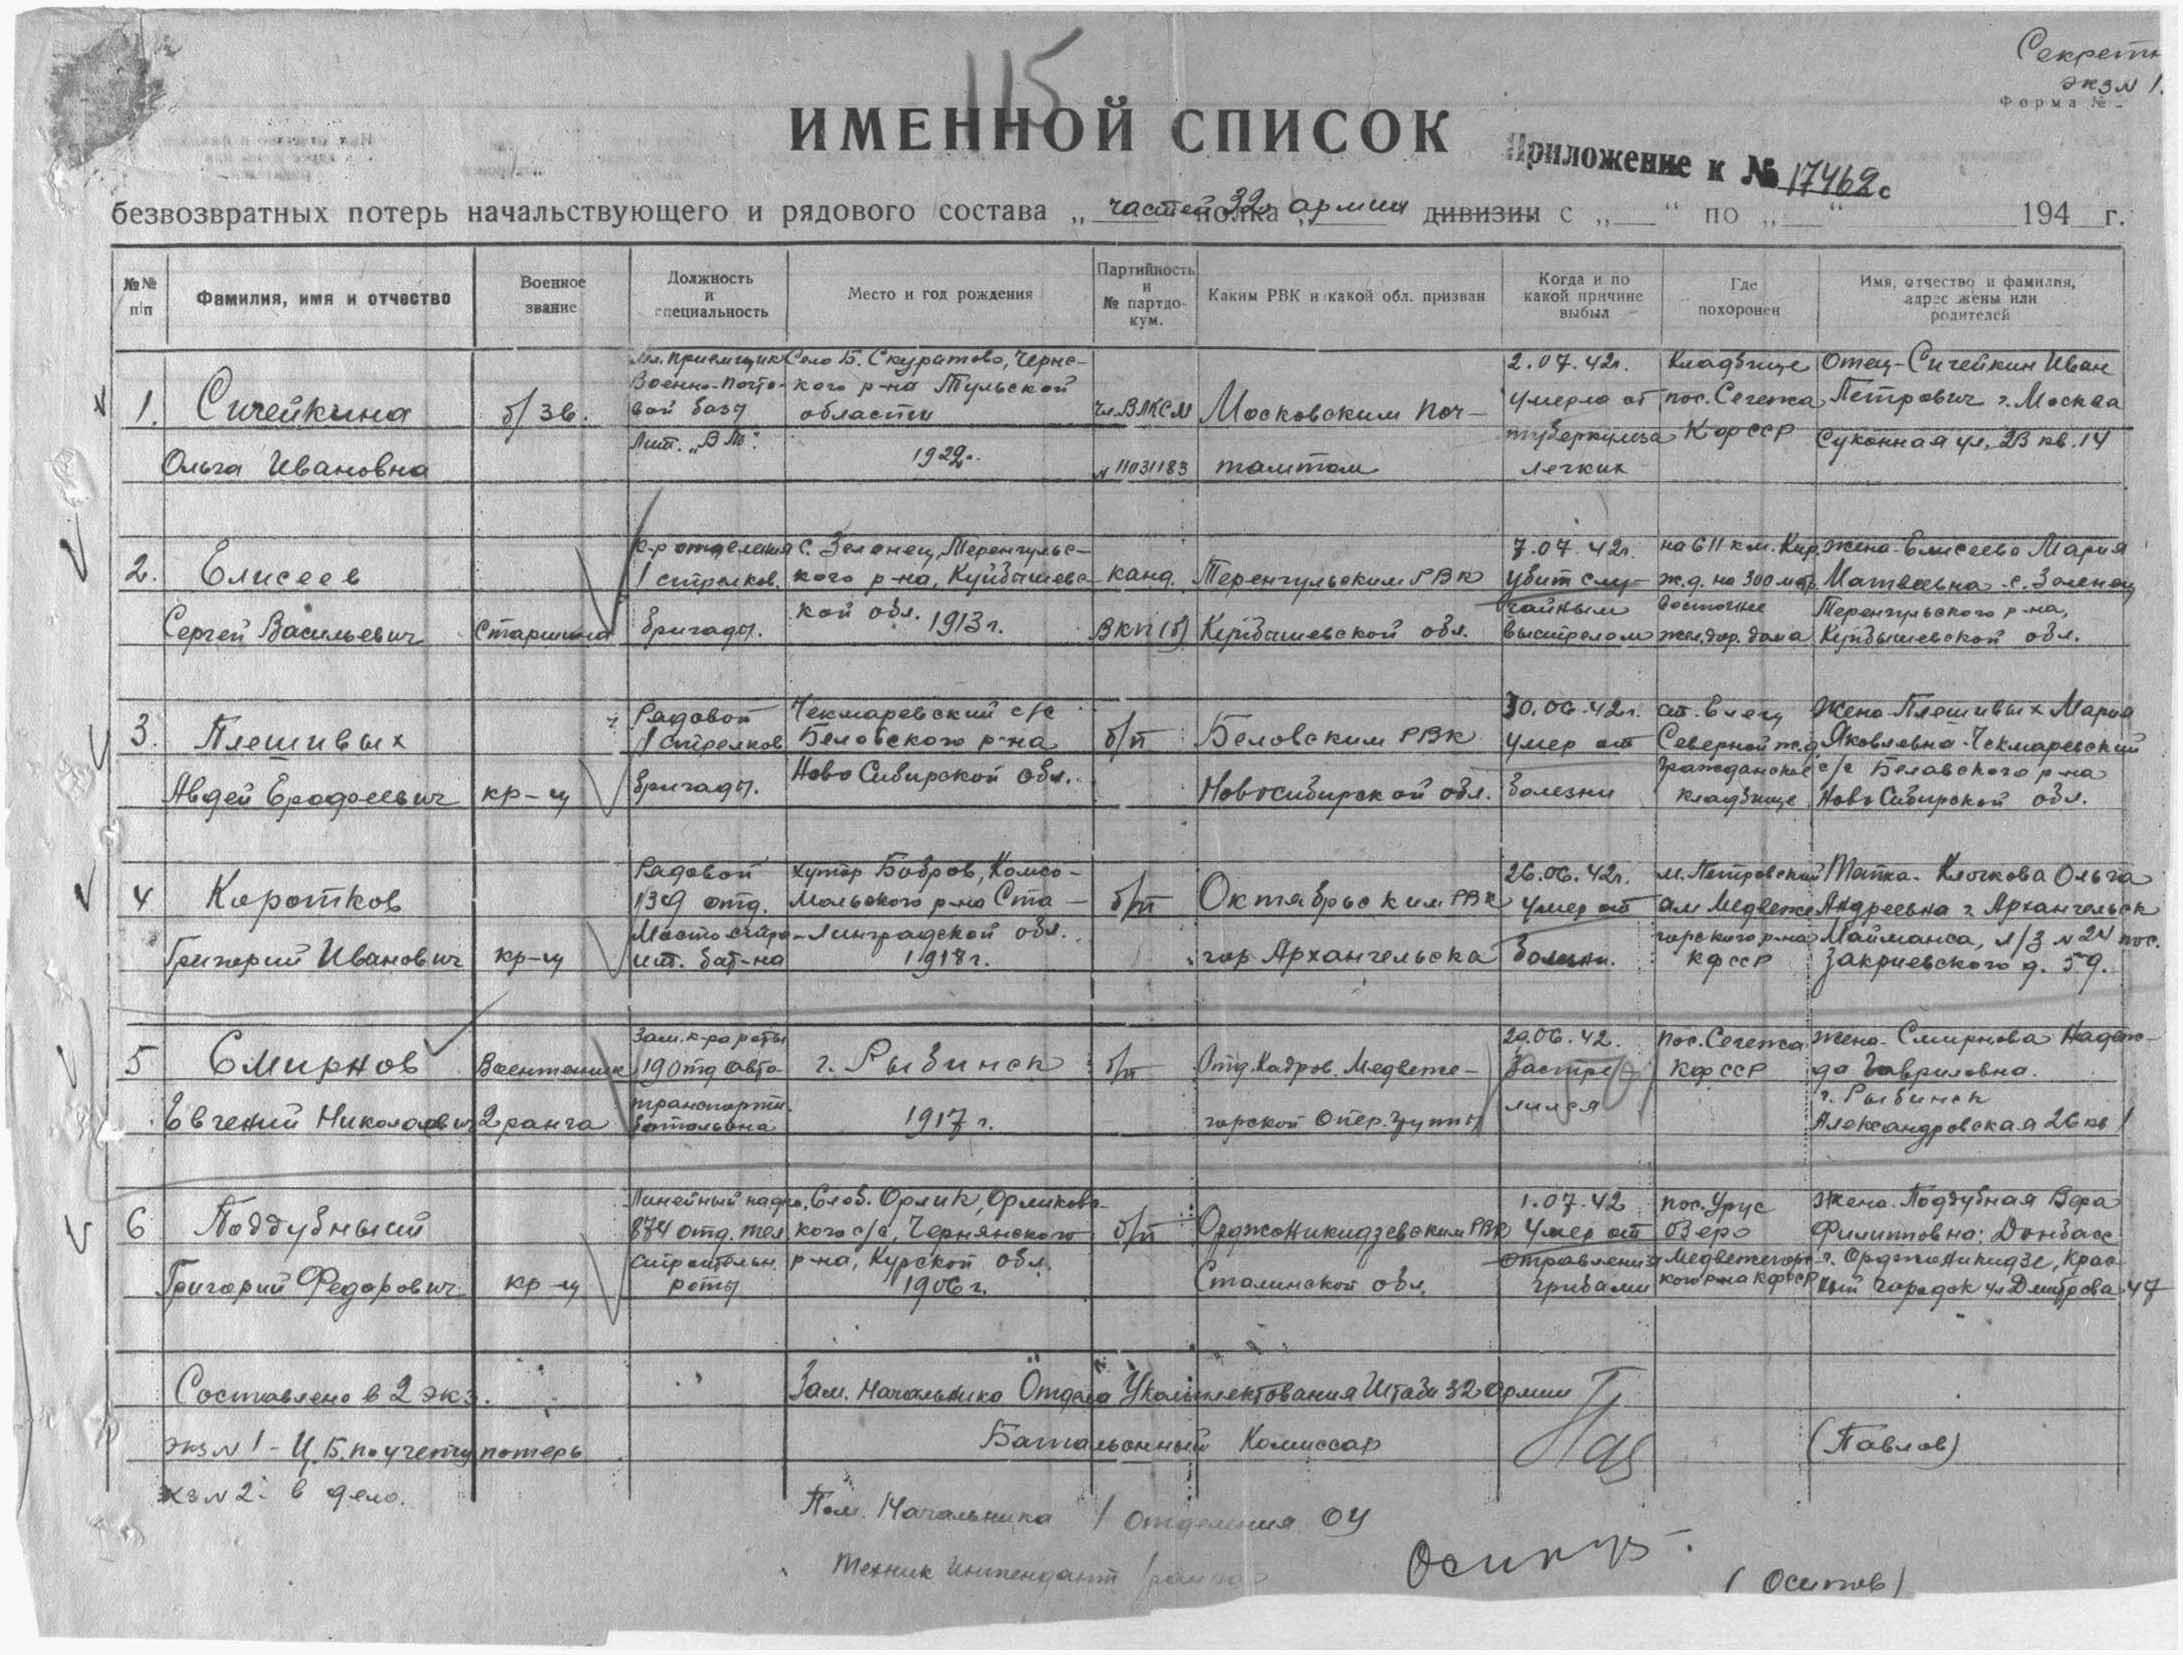 115
Секретн
экз N 1.
Форма №
ИМЕННОЙ СПИСОК
Приложение к № 17462с
безвозвратных потерь начальствующего и рядового состава „ частей полка 32 „ армии дивизии с „ “ по „ “ 194 г.
№№ п/п
Фамилия, имя и отчество
Военное звание
Должность и специальность
Место и год рождения
Партийность и № партдокум.
Каким РВК и какой обл. призван
Когда и по какой причине выбыл
Где похоронен
Имя, отчество и фамилия, адрес жены или родителей
1.
Сичейкина
Ольга Ивановна
б/зв.
Мл. приемщик
Военно-почто-
вой базы
Лит. „
Село Б. Скуратово, Чернс-
кого р-на Тульской
области
1922г.
чл. ВЛКСМ
N 11031183
Московским поч-
тамтом
2.07.42г.
умерла от
туберкулеза
легких
Кладбище
пос. Сегежа
КФССР
Отец-Сичейкин Иван
Петрович г. Москва
Суконная ул. 23 кв. 14
2.
Елисеев
Сергей Васильевич
Старшина
к-р отделения
1 стрелков.
бригады.
с. Зеленец, Теренгульс-
кого р-на, Куйбышевс-
кой обл. 1913г.
канд.
ВКП(б)
Теренгульским РВК
Куйбышевской обл.
7.07.42г.
убит слу-
чайным
выстрелом
на 611 км. Кир.
ж.д. на 300 мтр.
восточнее
жел.дор. дома
жена-Елисеева Мария
Матвеевна - с. Зеленец
Теренгульского р-на,
Куйбышевской обл.
3.
Плешивых
Авдей Ерофеевич
кр-ц
Рядовой
1 стрелков
бригады.
Чекмаревский с/с
Беловского р-на
НовоСибирской обл.
б/п
Беловским РВК
Новосибирской обл.
30.06.42г.
умер от
болезни
Северной ж.д.
Гражданское
кладбище
Жена-Плешивых Мария
Яковлевна-Чекмаревский
с/с Беловского р-на
НовоСибирской обл.
4
Коротков
Григорий Иванович
кр-ц
Рядовой
отд.
Мостостро-
ит. бат-на
хутор Бобров, Комсо-
мольского р-на Ста-
линградской обл.
1918г.
б/п
Октябрьским РВК
гор Архангельска
26.06.42г.
умер от
болезни.
м. Петровский
Ям Медвеже
горского р-на
КФССР
Клочкова Ольга
Андреевна г. Архангельск
Маймакса, л/з N 24 пос.
д. 59.
5
Смирнов
Евгений Николаевич
Воентехник
2 ранга
Зам. к-ра роты
19 отд авто
транспортн.
батальона
г. Рыбинск
1917 г.
б/п
Отд. Кадров Медвеже-
горской Опер. группы
20.06.42.
Застре-
лился
пос. Сегежа
КФССР
жена-Смирнова Надеж-
да Гавриловна.
г. Рыбинск
Александровская 26 кв 1
6
Поддубный
Григорий Федорович
кр-ц
Линейный надзр.
874 отд. тел
строительн.
роты
Слоб. Орлик, Орликовс-
кого с/с, Чернянского
р-на, Курской обл.
1906г.
б/п
Орджоникидзевским РВК
Сталинской обл.
1.07.42
Умер от
отравления
грибами
пос. Урус
Озеро
Медвежегорс-
кого р-на КФССР
Жена-Поддубная Вера
Филипповна: Донбасс
г. Орджоникидзе, Крас-
ный городок ул Дмитрова 47
Составлено в 2 экз.
экз N 1 - Ц.Б. по учету потерь
экз N 2: в дело.
Зам. Начальника Отдела Укомплектования Штаба 32 армии
Батальонный Комиссар
(Павлов)
Пом. Начальника 1 отделения ОУ
Техник Интендант 1 ранга
(Осипов)